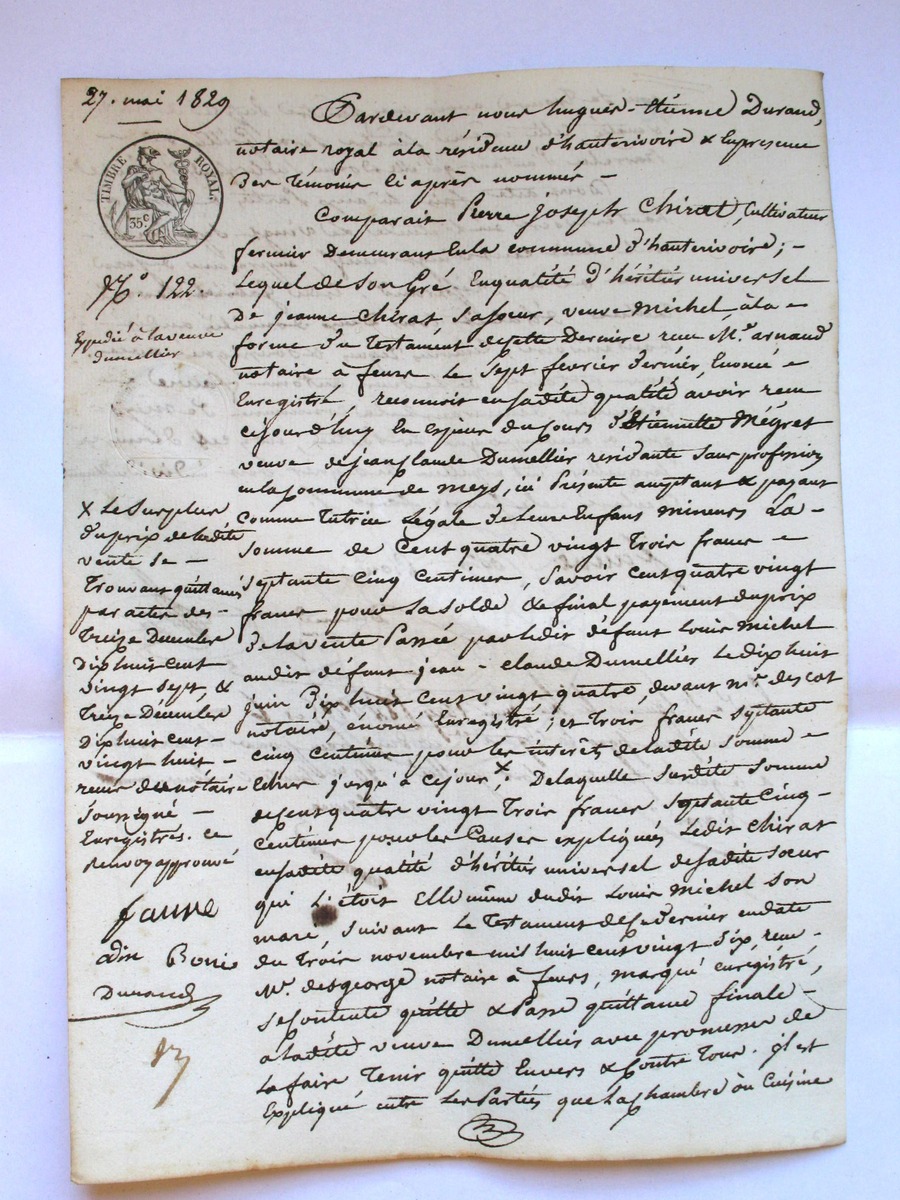 27. mai 1829
TIMBRE ROYAL.
35 c
N.o 122.
Expédiée à la veuve
Dumellier
Pardevant nous hugues-Etienne Durand,
notaire royal à la résidence d'hauterivoire & En presence
Des témoins Ci après nommés —
Comparait Pierre Joseph Chirat, Cultivateur
fermier Demeurant En la commune d'hauterivoire ; —
Lequel de son Gré En qualité d'héritier universel
De jeanne Chirat sa sœur, veuve michel, à la —
forme du Testament de cette Dernière reçu Me. arnaud
notaire à feurs le sept fevrier dernier, Enoncé —
Enregistré, reconnoit en sadite qualité avoir reçu
cejourd'huy En especes du cours d'Etiennette Mégret
veuve de jean Claude Dumellier résidante sans profession
en la Commune de meys, ici Présente acceptant & payant
comme Tutrice Légale de leurs Enfans mineurs La —
somme de Cent quatre vingt Trois francs —
septante Cinq Centimes, savoir cent quatre vingt
francs pour la solde & final payement du prix
de la vente Passée par ledit défunt Louis Michel
audit défunt jean-Claude Dumellier Le dix huit
juin Dix huit Cent vingt quatre, devant me. descot
notaire, énoncé Enregistré ; et Trois francs septante
cinq Centimes pour les intérêts de ladite somme —
Echus jusqu'à ce jour X ; De laquelle susdite somme
de Cent quatre vingt Trois francs septante Cinq —
Centimes pour les Causes expliquées Ledit Chirat
en sadite qualité d'héritier universel de sadite sœur
qui L'étoit Elle même dudit Louis Michel son
mari, suivant le Testament de ce dernier en date
du Trois novembre mil huit cent vingt Six, reçu —
Me. desgeorge notaire à feurs, marqué enregistré,
se Contente quitte & Passe quittance finale —
à ladite veuve Dumellier avec promesse de
La faire Tenir quitte Envers & Contre Tous. il est
Expliqué entre les Parties que la Chambre ou Cuisine
X Le Surplus
du prix de ladite
vente se —
Trouvant quittancé
par actes des —
Treize Decembre
dix huit cent
vingt sept, &
Treize Décembre
dix huit cent —
vingt huit —
reçus du notaire
soussigné —
Enregistrés. ce
Renvoy approuvé
faune
Durand